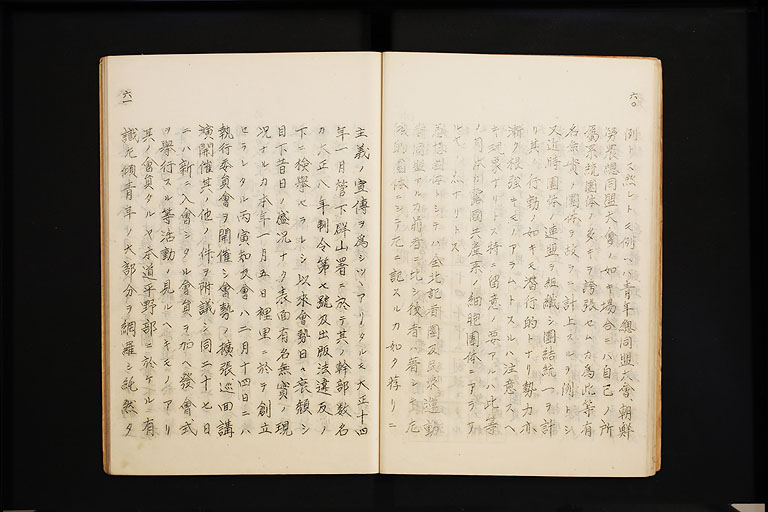 六〇
例トス然レトモ例ヘハ青年總同盟大會、朝鮮
勞農總同盟大會ノ如キ場合ニハ自己ノ所
屬系統團体ノ多キヲ誇張セムカ為此等有
名無實ノ團体ヲ故ラニ計上スルヲ例トシ
又近時團体ノ連盟ヲ組織シ團結統一ヲ計
リ其ノ行動ノ如キモ潜行的トナリ勢力亦
漸ク根強キモノアラムトスルハ注意スヘ
キ現象ナリトス特ニ留意ノ要アルハ此等
ノ團体カ露國共産系ノ細胞團体ニアラサ
ルヤノ点ナリトス
思想團体トシテハ全北記者團及民衆運動
者同盟アルカ前者ニ比シ後者ハ著シキ尼
的團体ニシテ左ニ記スルカ如ク存リニ
六一
主義ノ宣傳ヲ為シツヽアリタルモ大正十四
年一月管下群山署ニ於テ其ノ幹部数名
カ大正八年制令第七號及出版法違反ノ
下ニ檢擧セラレシ以來會勢日々衰頽シ
目下昔日ノ盛况ナク表面有名無實ノ現
况ナルカ本年一月五日裡里ニ於テ創立
セラレタル丙寅知友會ハ二月十四日ニハ
執行委員會ヲ開催シ會勢ノ擴張巡回講
演開催其ノ他ノ件ヲ附議シ同二十七日
ニハ新ニ入會シタル會員ヲ加ヘ發會式
ヲ擧行スル等活動ノ見ルヘキモノアリ
其ノ會員タルヤ本道平野部ニ於ケル有
識左傾青年ノ大部分ヲ網羅シ純然タ